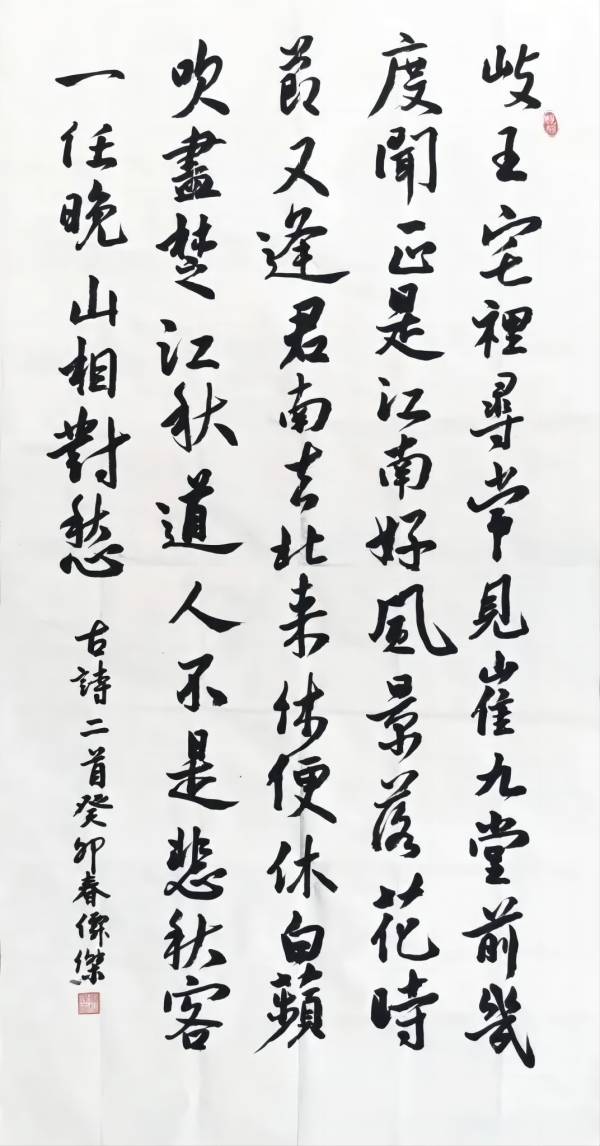 岐王宅裡尋常見崔九堂前幾
度聞正是江南好風景落花時
節又逢君南去北来休便休白蘋
吹盡楚江秋道人不是悲秋客
一任晚山相對愁
古詩二首癸卯春儝傑